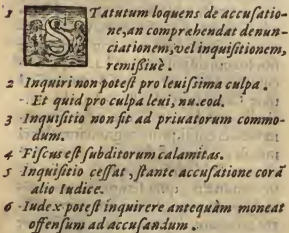 1 STatutum loquens de accusatio-
ne, an comprehendat denun-
ciationem, vel inquisitionem,
remissiuè.
2 Inquiri non potest pro leuissima culpa.
Et quid pro culpa leui, nu. eod.
3 Inquisitio non fit ad priuatorum commo-
dum.
4 Fiscus est subditorum calamitas.
5 Inquisitio cessat, stante accusatione corā
alio Iudice.
6 Iudex potest inquirere antequàm moneat
offensum ad accusandum.